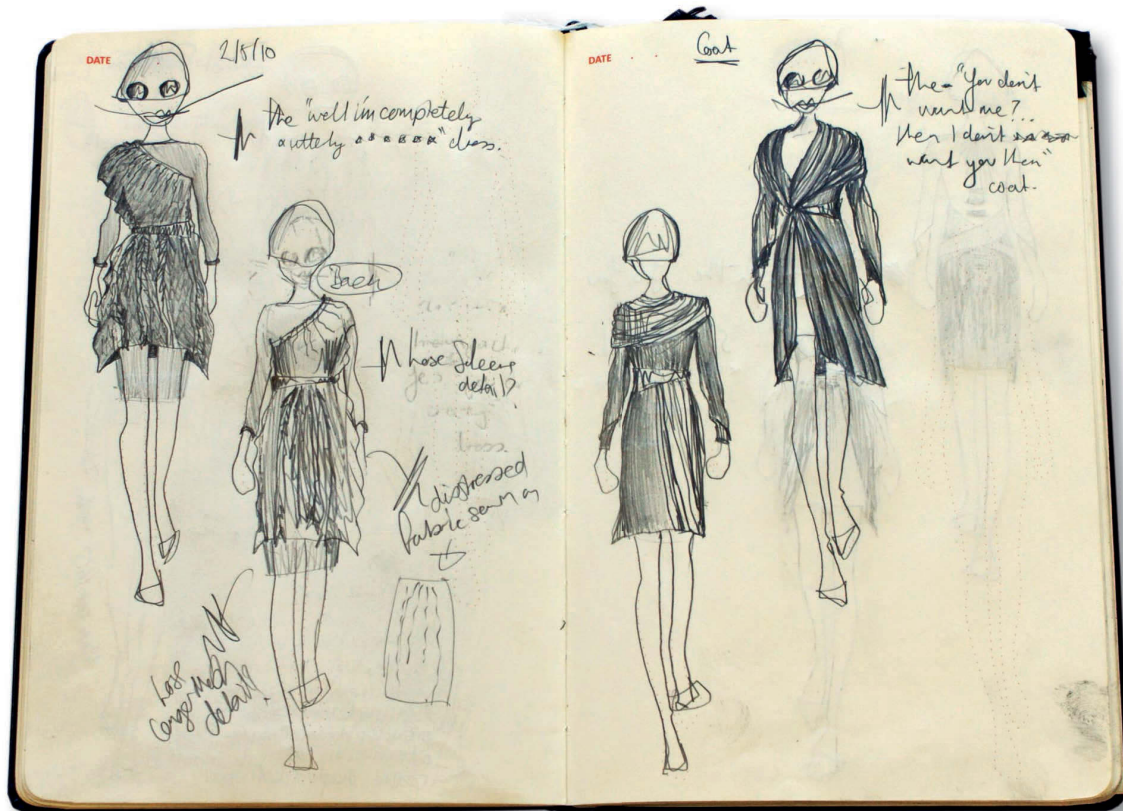 DATE
2/8/10
the "well i'm completely
& utterly ******" dress.
Back
sleeve
detail?
distressed
fabric sewn on
detail?
DATE
Coat
the "You don't
want me?...
then I don't
want you then"
coat.